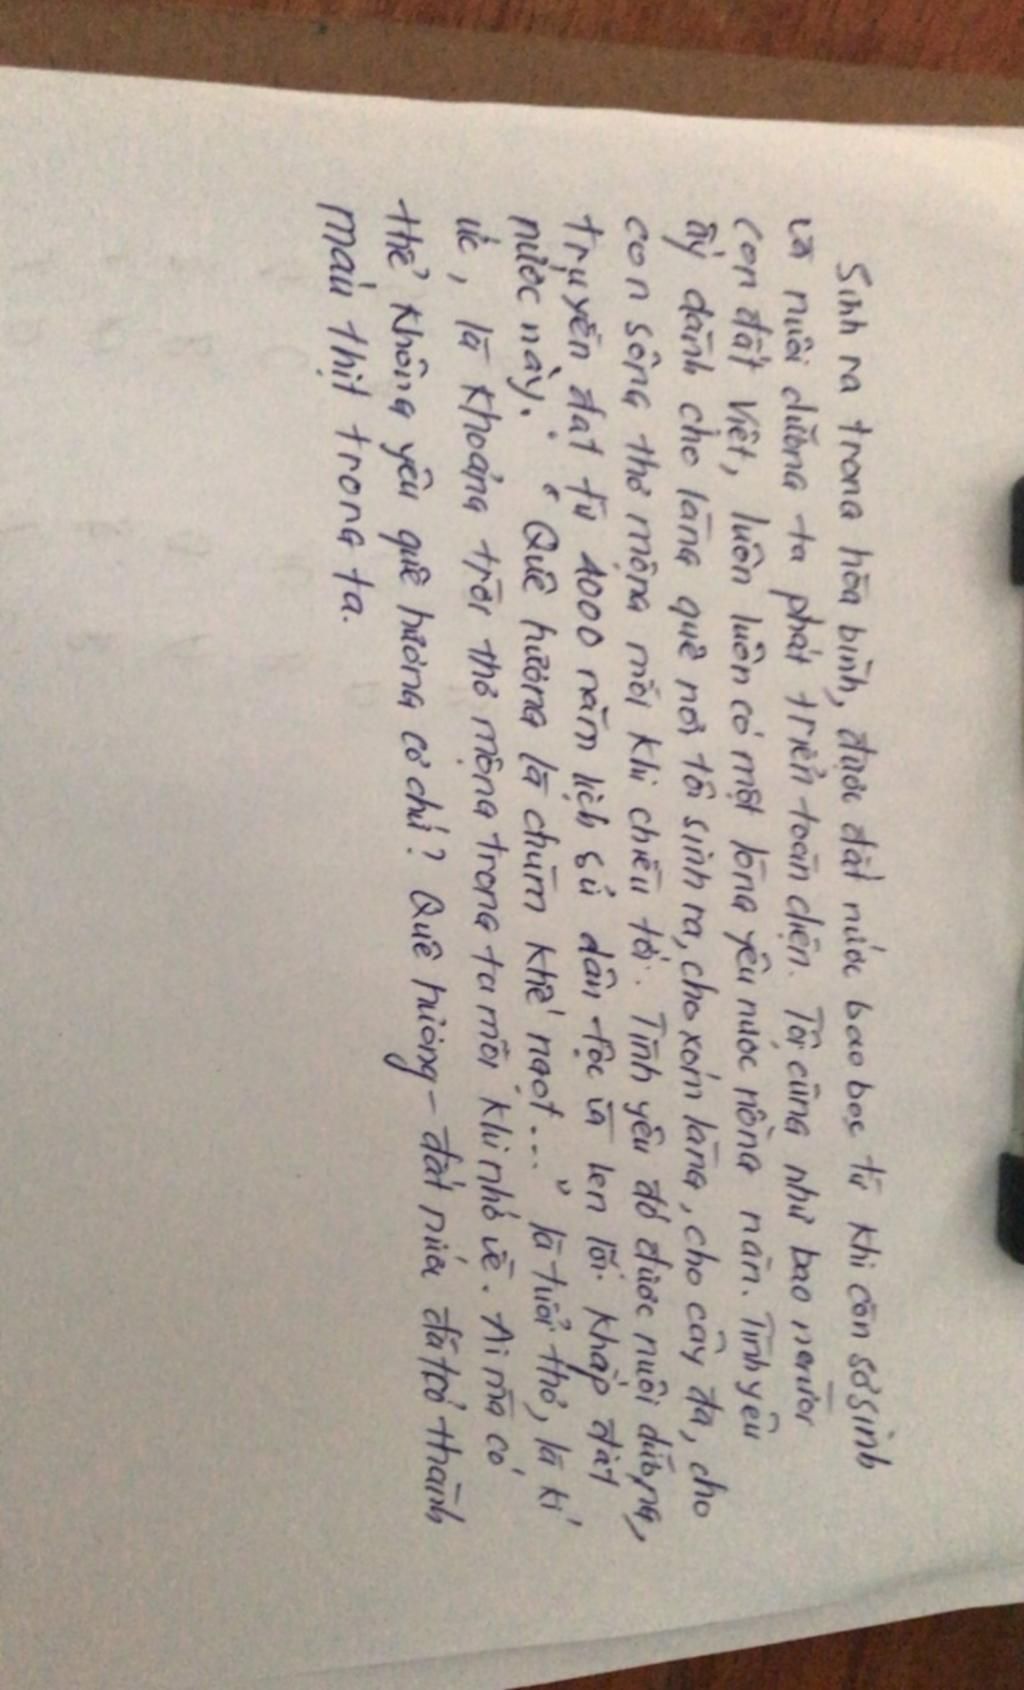 Sinh ra trong hòa bình, được đất nước bao bọc từ khi còn sơ sinh
và nuôi dưỡng ta phát triển toàn diện. Tôi cũng như bao người
con đất Việt, luôn luôn có một lòng yêu nước nồng nàn. Tình yêu
ấy dành cho làng quê nơi tôi sinh ra, cho xóm làng, cho cây đa, cho
con sông thơ mộng mỗi khi chiều tới. Tình yêu đó được nuôi dưỡng,
truyền đạt từ 4000 năm lịch sử dân tộc và len lỏi khắp đất
nước này. "Quê hương là chùm khế ngọt..." là tuổi thơ, là kí
ức, là khoảng trời thơ mộng trong ta mỗi khi nhớ về. Ai mà có
thể không yêu quê hương cơ chứ? Quê hương - đất nước đã trở thành
máu thịt trong ta.